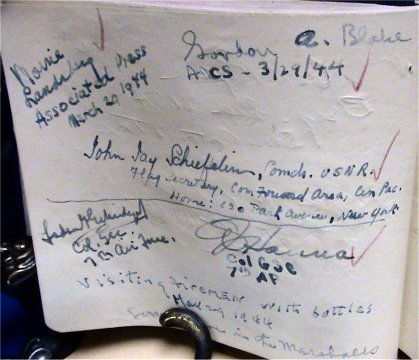 Morrie
Landsberg
Associated Press
March 29 1944
Gordon A. Blake
ACS - 3/29/44
John Jay Schieffelin, Comdr. USNR.
Flag Secretary, Com Forward Area, Cen Pac.
Home: 620 Park Avenue, New York
Col.
7th Air Force.
Col GSC
7th AF
Visiting firemen with bottles
in the Marshalls